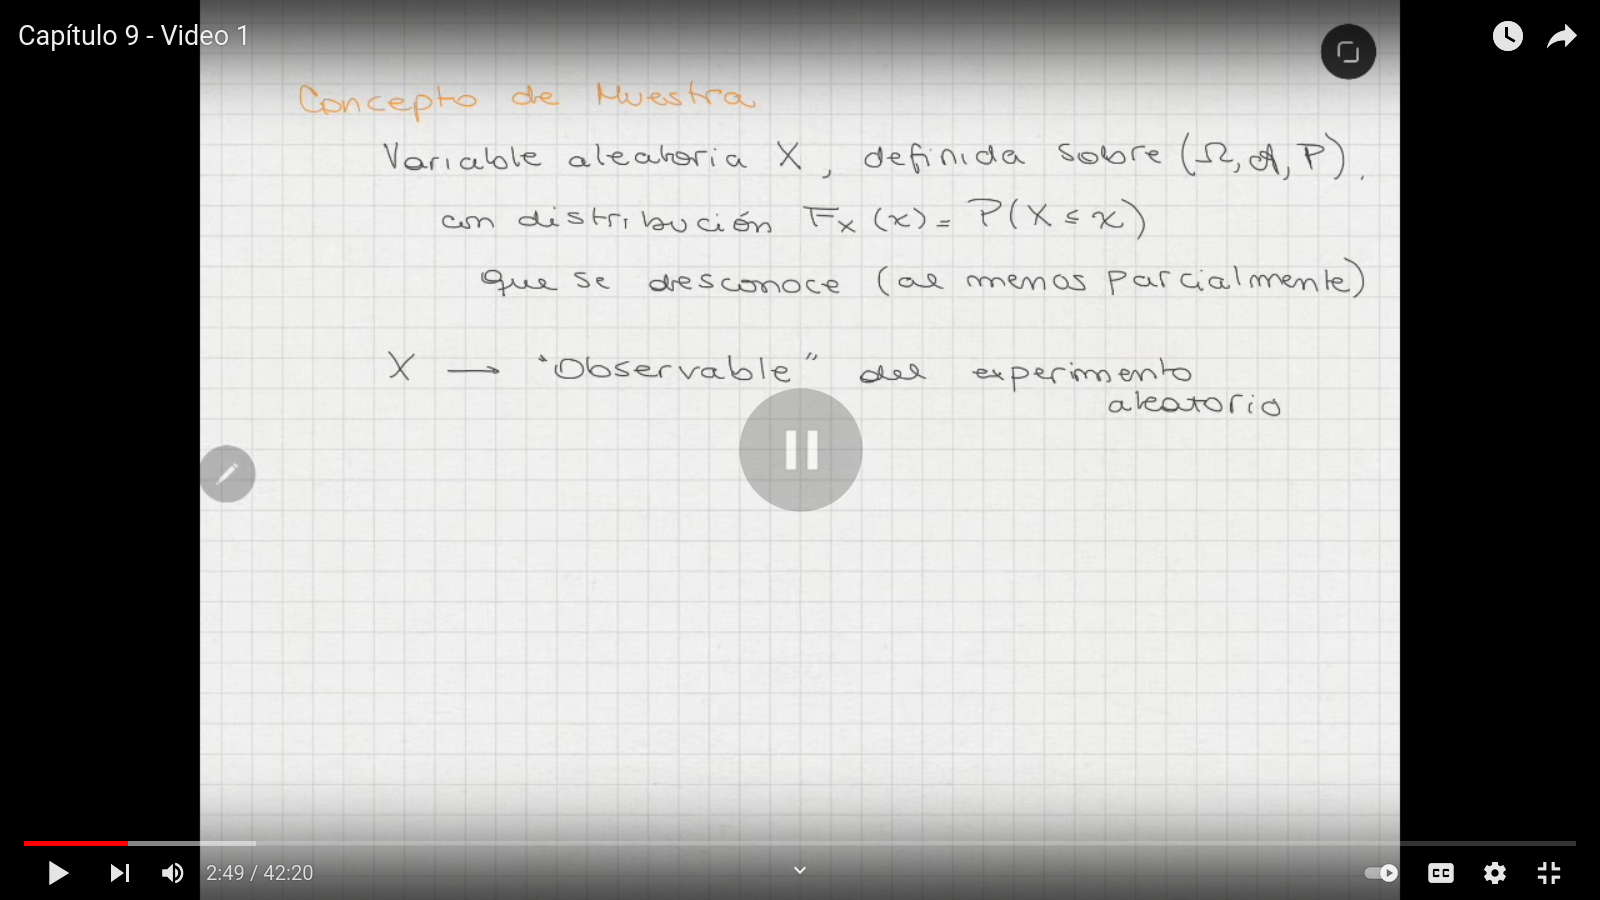 Capítulo 9 - Video 1
Concepto de Muestra
Variable aleatoria X, definida sobre (Ω, A, P),
con distribución F_X (x) = P(X ≤ x)
que se desconoce (al menos parcialmente)
X → "Observable" del experimento
aleatorio
2:49 / 42:20
CC